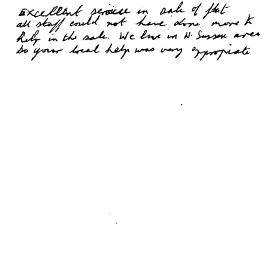 Excellent service in sale of flat
all staff could not have done more to
help in the sale. We live in W. Sussex area
So your local help was very appropiate